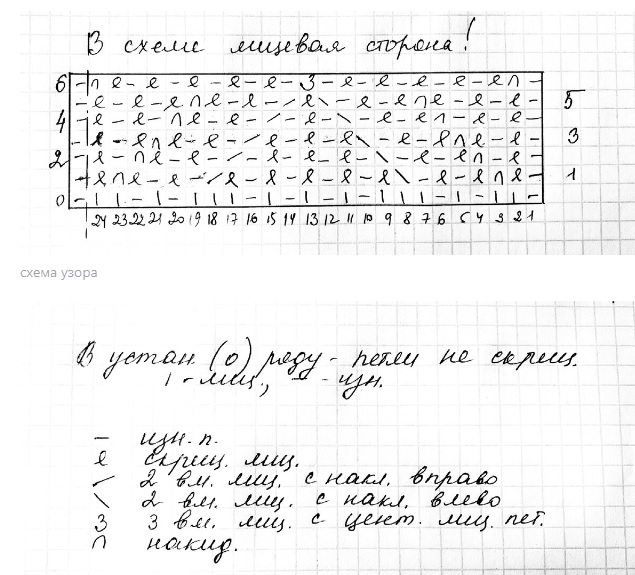 В схеме лицевая сторона!
6 - ∩ ℓ - ℓ - ℓ - ℓ - ℓ - 3 - ℓ - ℓ - ℓ - ℓ - ℓ ∩ -
- ℓ - ℓ - ℓ ∩ ℓ - ℓ - / ℓ \ - ℓ - ℓ ∩ ℓ - ℓ - ℓ - 5
4 - ℓ - ℓ - ∩ ℓ - ℓ - / - ℓ - \ - ℓ - ℓ ∩ - ℓ - ℓ -
- ℓ - ℓ ∩ ℓ - ℓ - / ℓ - ℓ - ℓ \ - ℓ - ℓ ∩ ℓ - ℓ - 3
2 - ℓ - ∩ ℓ - ℓ - / - ℓ - ℓ - ℓ - \ - ℓ - ℓ ∩ - ℓ -
- ℓ ∩ ℓ - ℓ - / ℓ - ℓ - ℓ - ℓ - ℓ \ - ℓ - ℓ ∩ ℓ - 1
0 - | | - | - | | | - | - | - | - | - | | | - | - | | -
24 23 22 21 20 19 18 17 16 15 14 13 12 11 10 9 8 7 6 5 4 3 2 1
схема узора
В устан. (0) ряду - петли не скрещ.
| - лиц., - - изн.
- изн. п.
ℓ скрещ. лиц.
/ 2 вм. лиц. с накл. вправо
\ 2 вм. лиц. с накл. влево
3 3 вм. лиц. с цент. лиц. пет.
∩ накид.